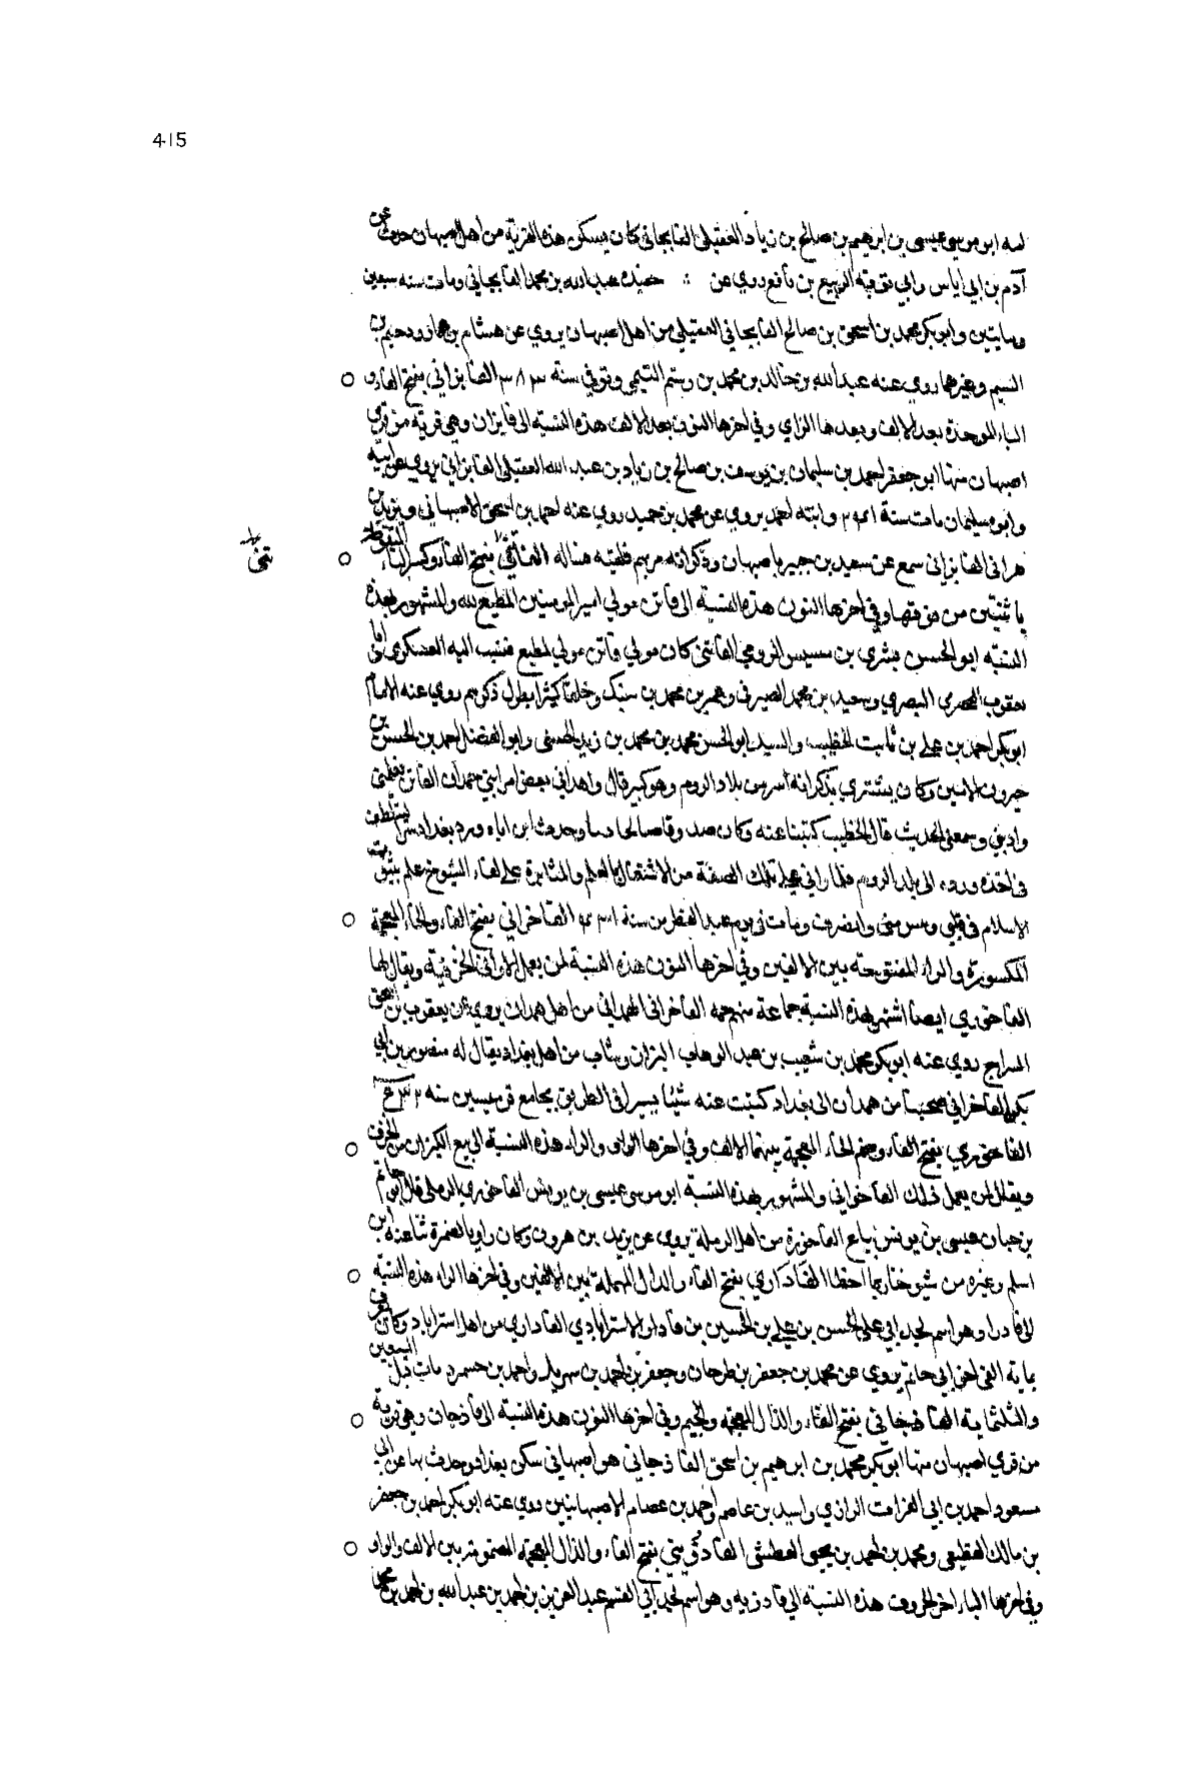 415
ابو موسى عيسى بن ابرهيم بن صالح بن زياد العقيلى الفابجاني كان يسكن هذه القرية من اهل اصبهان حدث عن
آدم بن ابي اياس وابي توبة الربيع بن نافع روي عن ∴ حفيده عبد الله بن محمد الفابجاني ومات سنه سبعين
ومايتين وابو بكر محمد بن اسحق بن صالح الفابجاني العقيلي من اهل اصبهان يروي عن هشام بن عمار ودحيم بن
اليتيم وغيرهما روى عنه عبد الله بن خالد بن محمد بن رستم التيمي وتوفي سنة ٣٨٣ الفابزاني بفتح الفاء و O
الباء الموحدة بعد الالف وبعدها الزاي وفي اخرها النون بعد الالف هذه النسبة الى فابزان وهي قرية من قري
اصبهان منها ابو جعفر احمد بن سليمان بن يوسف بن صالح بن زياد بن عبد الله العقيلى الفابزاني يروي عن ابيه
وابوه سليمان مات سنة وابنه احمد يروي عن محمد بن حميد روي عنه احمد بن اسحق الاصبهاني ويزيد بن
هرانى الفابزانى سمع عن سعيد بن جبير باصبهان وذكر انه مر بهم فلقيه هناك الفاتني بفتح الفاء وكسر التاء المنقوطة O
باثنتين من فوقها وفي اخرها النون هذه النسبة الى فاتن مولي امير المومنين المطيع لله والمشهور بهذه
النسبة ابو الحسن بشري بن مسيس الرومي الفاتني كان مولي فاتن مولي المطيع فنسب اليه العسكري ابا
يعقوب البصري وسعيد بن محمد الصيرفي وعمر بن محمد بن سبنك وخلقا كثيرا يطول ذكرهم روي عنه الامام
ابو بكر احمد بن علي بن ثابت الخطيب والسيد ابو الحسن محمد بن محمد بن زيد الحسيني وابو الفضل احمد بن الحسن بن
خيرون الامين وكان بشري يذكر انه اسر من بلاد الروم وهو كبير قال واهداني بعض امرا بني حمدان الفاتن فعلمني
وادبني وسمعني الحديث قال الخطيب كتبنا عنه وكان صدوقا صالحا دينا وحدث ان اباه ورد بغداد سرا ليتلطف
في اخذه ورده الى بلد الروم فلما راني علي تلك الصفة من الاشتغال بالعلم والمثابرة علي لقاء الشيوخ علم ثبوت
الاسلام في قلبي ويس مني وانصرف ومات في يوم عيد الفطر من سنة ٤٣١ الفاخراني بفتح الفاء والخاء المعجمة O
المكسورة والراء المفتوحة بين الالفين وفي اخرها النون هذه النسبة لمن يعمل الاواني الخزفية ويقال لها
الفاخوري ايضا اشتهر بهذه النسبة جماعة منهم حمه الفاخرانى الهمداني من اهل همدان يروي عن يعقوب بن اسحق
السراج روي عنه ابو بكر محمد بن شعيب بن عبد الوهاب البزاز وشاب من اهل بغداد يقال له منصور بن ابي
بكر الفاخراني صحبنا من همدان الى بغداد كتبت عنه شيئا يسيرا في الطريق بجامع قرميسين سنه
الفاخوري بفتح الفاء وضم الخاء المعجمة بينهما الالف وفي اخرها الواو والراء هذه النسبة الى بيع الكيزان من الخزف O
ويقال لمن يعمل ذلك الفاخراني والمشهور بهذه النسبة ابو موسى عيسى بن يونس الفاخوري الرملي قال ابو حاتم
بن حبان عيسى بن يونس بياع الفاخورة من اهل الرملة يروي عن يزيد بن هرون وكان راويا لضمرة ثنا عنه ابن
اسلم وغيره من شيوخنا ربما اخطا الفاداري بفتح الفاء والدال المهملة بين الالفين وفي اخرها الراء هذه النسبة O
الى فادار وهو اسم لجد ابي علي الحسن بن علي بن الحسين بن فادار الاستراباذي الفاداري من اهل استراباد وكان يعرف
بماية الفي اخي ابي حاتم يروي عن محمد بن جعفر بن طرخان وجعفر بن احمد بن واحمد بن مات قبل السبعين
والثلثماية الفاذجاني بفتح الفاء والذال المعجمة والجيم وفي اخرها النون هذه النسبة الى فاذجان وهي قرية O
من قري اصبهان منها ابو بكر محمد بن ابرهيم بن اسحق الفاذجاني هو اصبهاني سكن بغداد وحدث بها عن ابي
مسعود احمد بن ابي الفرات الرازي واسيد بن عاصم واحمد بن عصام الاصبهانيين روي عنه ابو بكر احمد بن جعفر
بن مالك القطيعي ومحمد بن احمد بن يحيى العطشي الفاذويي بفتح الفاء والذال المعجمة المضمومة بين الالف والواو O
وفي اخرها الياء اخر الحروف هذه النسبة الى فاذويه وهو اسم لجد ابي القسم عبد العزيز بن احمد بن عبد الله بن احمد بن محمد